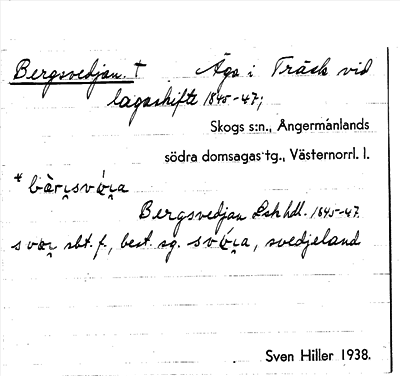 Bergsvedjan. † Äga i Träsk vid
lagaskifte 1845-47;
Skogs s:n., Ångermanlands
södra domsagas tg., Västernorrl. l.
Bergsvedjan Lskhdl. 1845-47.
sbst. f., best. sg. svedjeland
Sven Hiller 1938.